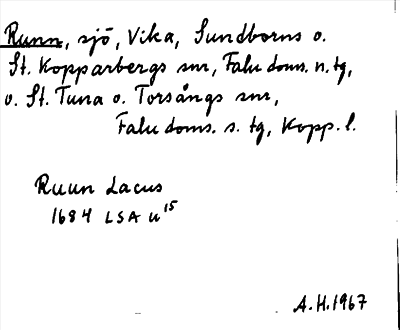 Runn, sjö, Vika, Sundborns o.
St. Kopparbergs snr, Falu doms. n. tg,
o. St. Tuna o. Torsångs snr,
Falu doms. s. tg, Kopp. l.
Ruun Lacus
1684 LSA U15
A.H.1967